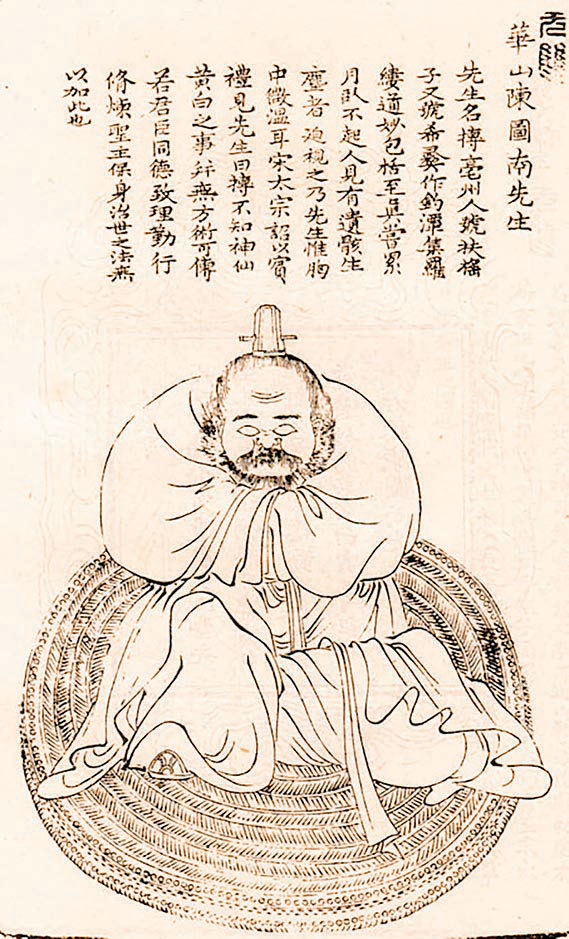 華山陳圖南先生
先生名摶亳州人號扶搖
子又號希夷作釣潭集羅
縷道妙包括至真嘗累
月臥不起人見有遺骸生
塵者迫視之乃先生惟胸
中微溫耳宋太宗詔以賓
禮見先生曰摶不知神仙
黃白之事并無方術可傳
若君臣同德致理勤行
脩煉聖主保身治世之法無
以加此也